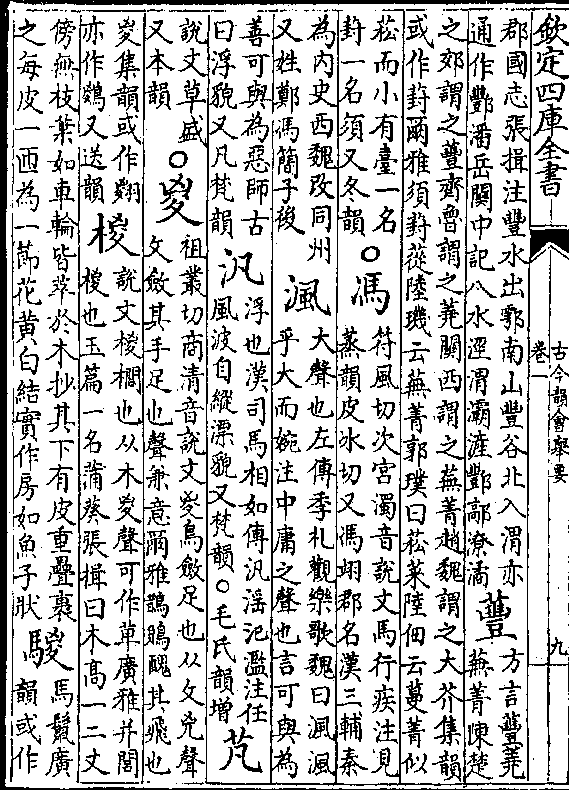 欽定四庫全書
古今韻會舉要
卷一
九
郡國志張揖注豐水出鄠南山豐谷北入渭亦
通作酆潘岳關中記八水涇渭灞滻酆鄗潦潏
蘴
方言蘴蕘
蕪菁陳楚
之郊謂之蘴齊魯謂之蕘關西謂之蕪菁趙魏謂之大芥集韻
或作葑爾雅須葑蓯陸璣云蕪菁郭璞曰菘菜陸佃云蔓菁似
菘而小有臺一名
葑一名須又冬韻
○馮
符風切次宮濁音說文馬行疾注見
蒸韻皮冰切又馮翊郡名漢三輔秦
為內史西魏改同州
又姓鄭馮簡子後
渢
大聲也左傳季札觀樂歌魏曰渢渢
乎大而婉注中庸之聲也言可與為
善可與為惡師古
曰浮貌又凡梵韻
汎
浮也漢司馬相如傳汎滛氾濫注任
風波自縱漂貌又梵韻○毛氏韻增
芃
說文草盛
又本韻
○㚇
祖叢切商清音說文㚇鳥斂足也从夂兇聲
夂斂其手足也聲兼意爾雅鵲鵙醜其飛也
㚇集韻或作翪
亦作鵔又送韻
椶
說文椶櫚也从木㚇聲可作萆廣雅幷閭
椶也玉篇一名蒲葵張楫曰木高一二丈
傍無枝葉如車輪皆萃於木抄其下有皮重疊裹
之每皮一匝為一節花黃白結實作房如魚子狀
騣
馬鬣廣
韻或作